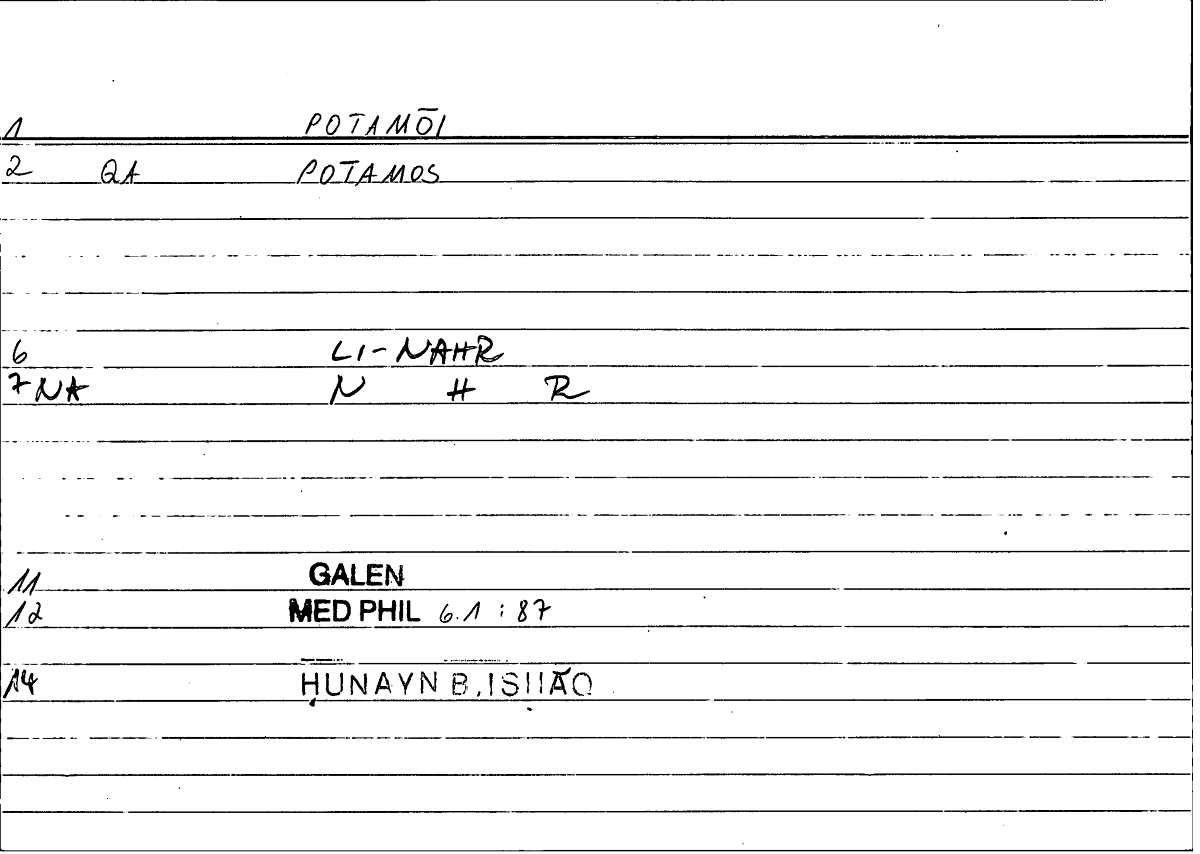 1 POTAMŌI
2 QA POTAMOS
6 LI-NAHR
7 NA N H R
11 GALEN
12 MED PHIL 6.1 : 87
14 ḤUNAYN B. ISḤĀQ